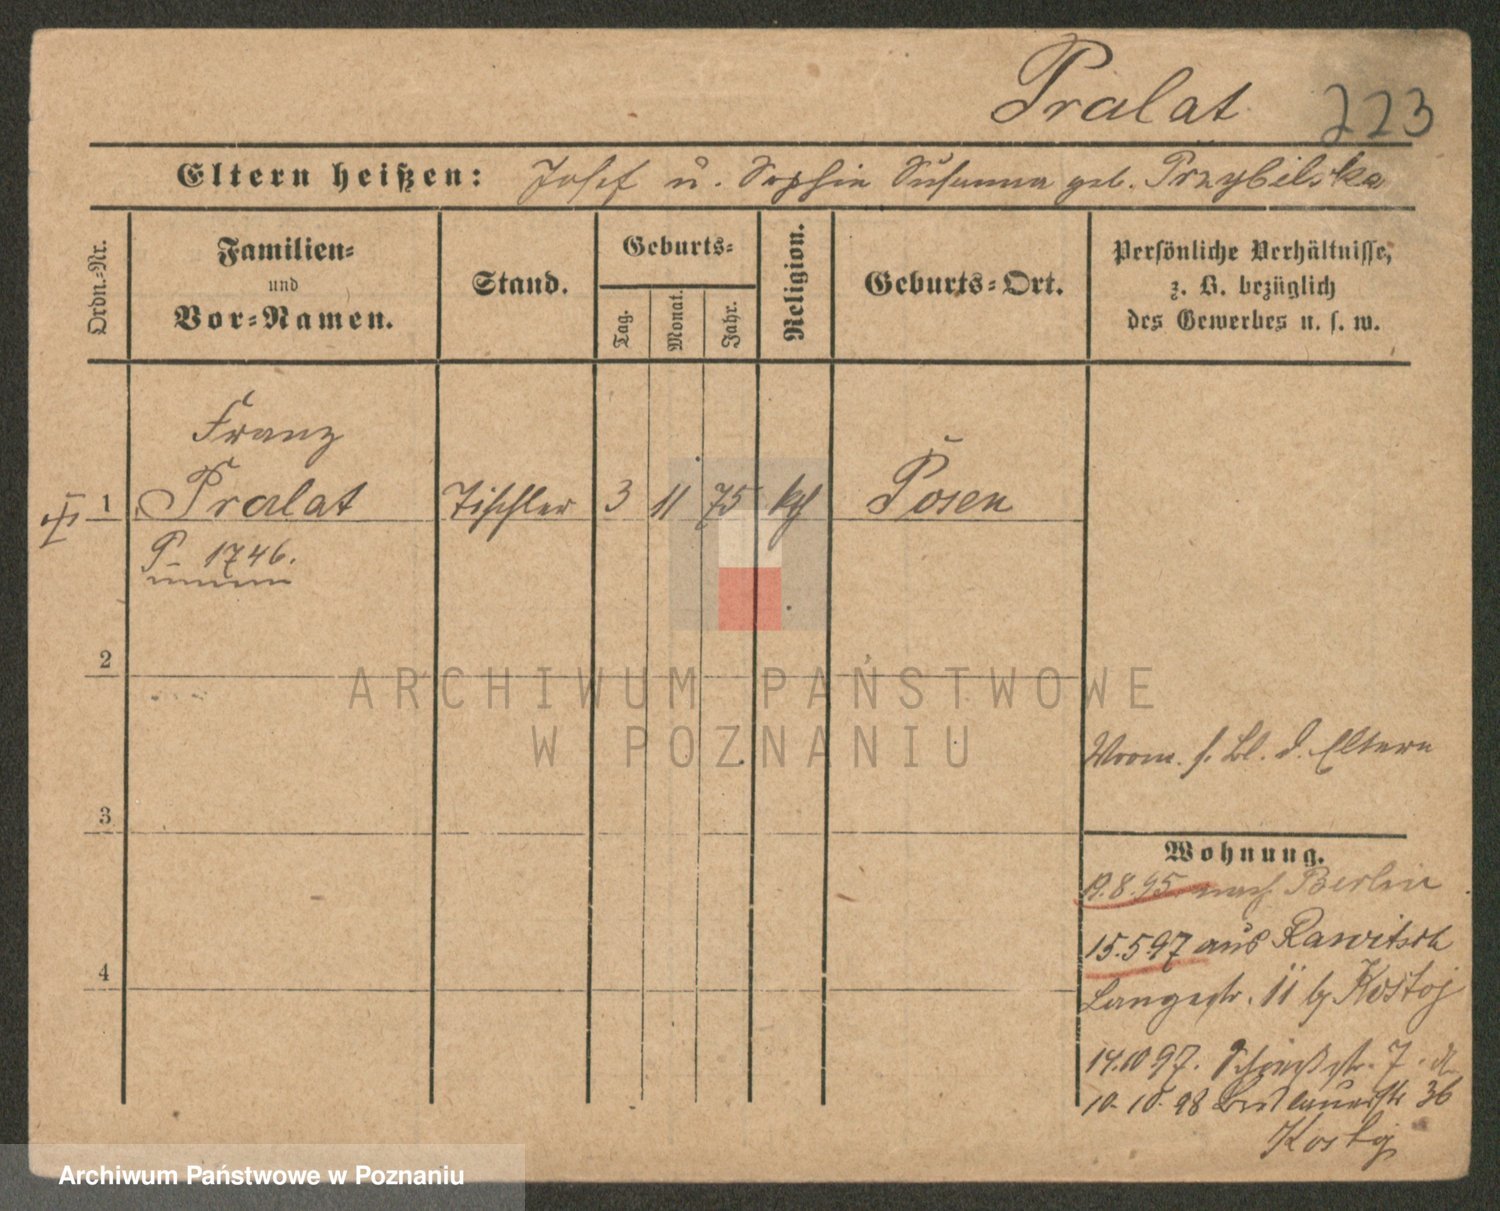 Pralat 223
Eltern heißen: Josef u. Sophie Susanna geb. Przybilska
Ordn.=Nr.
Familien=
und
Vor=Namen.
Stand.
Geburts=
Tag.
Monat.
Jahr.
Religion.
Geburts=Ort.
Persönliche Verhältnisse,
z. B. bezüglich
des Gewerbes u. s. w.
Franz
1 Pralat Tischler 3 11 75 kth Posen
P- 1746.
2
ARCHIWUM PAŃSTWOWE
W POZNANIU
s. Bl. d. Eltern
3
Wohnung.
19.8.95 nach Berlin
15.5.97 aus Rawitsch
Langestr. 11 b/ Kostoj
4
14.10 97. 7.
10.10.98 36
Archiwum Państwowe w Poznaniu